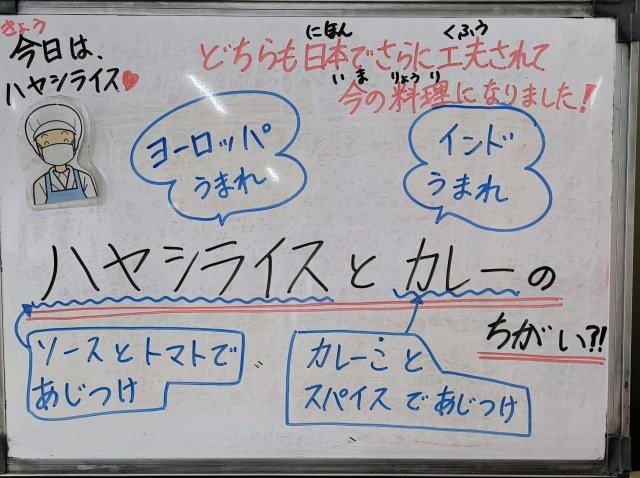 きょう
今日は、
ハヤシライス
にほん くふう
どちらも日本でさらに工夫されて
いま りょうり
今の料理になりました!
ヨーロッパ
うまれ
インド
うまれ
ハヤシライスとカレーの
ちがい?!
ソースとトマトで
あじつけ
カレーこと
スパイスであじつけ